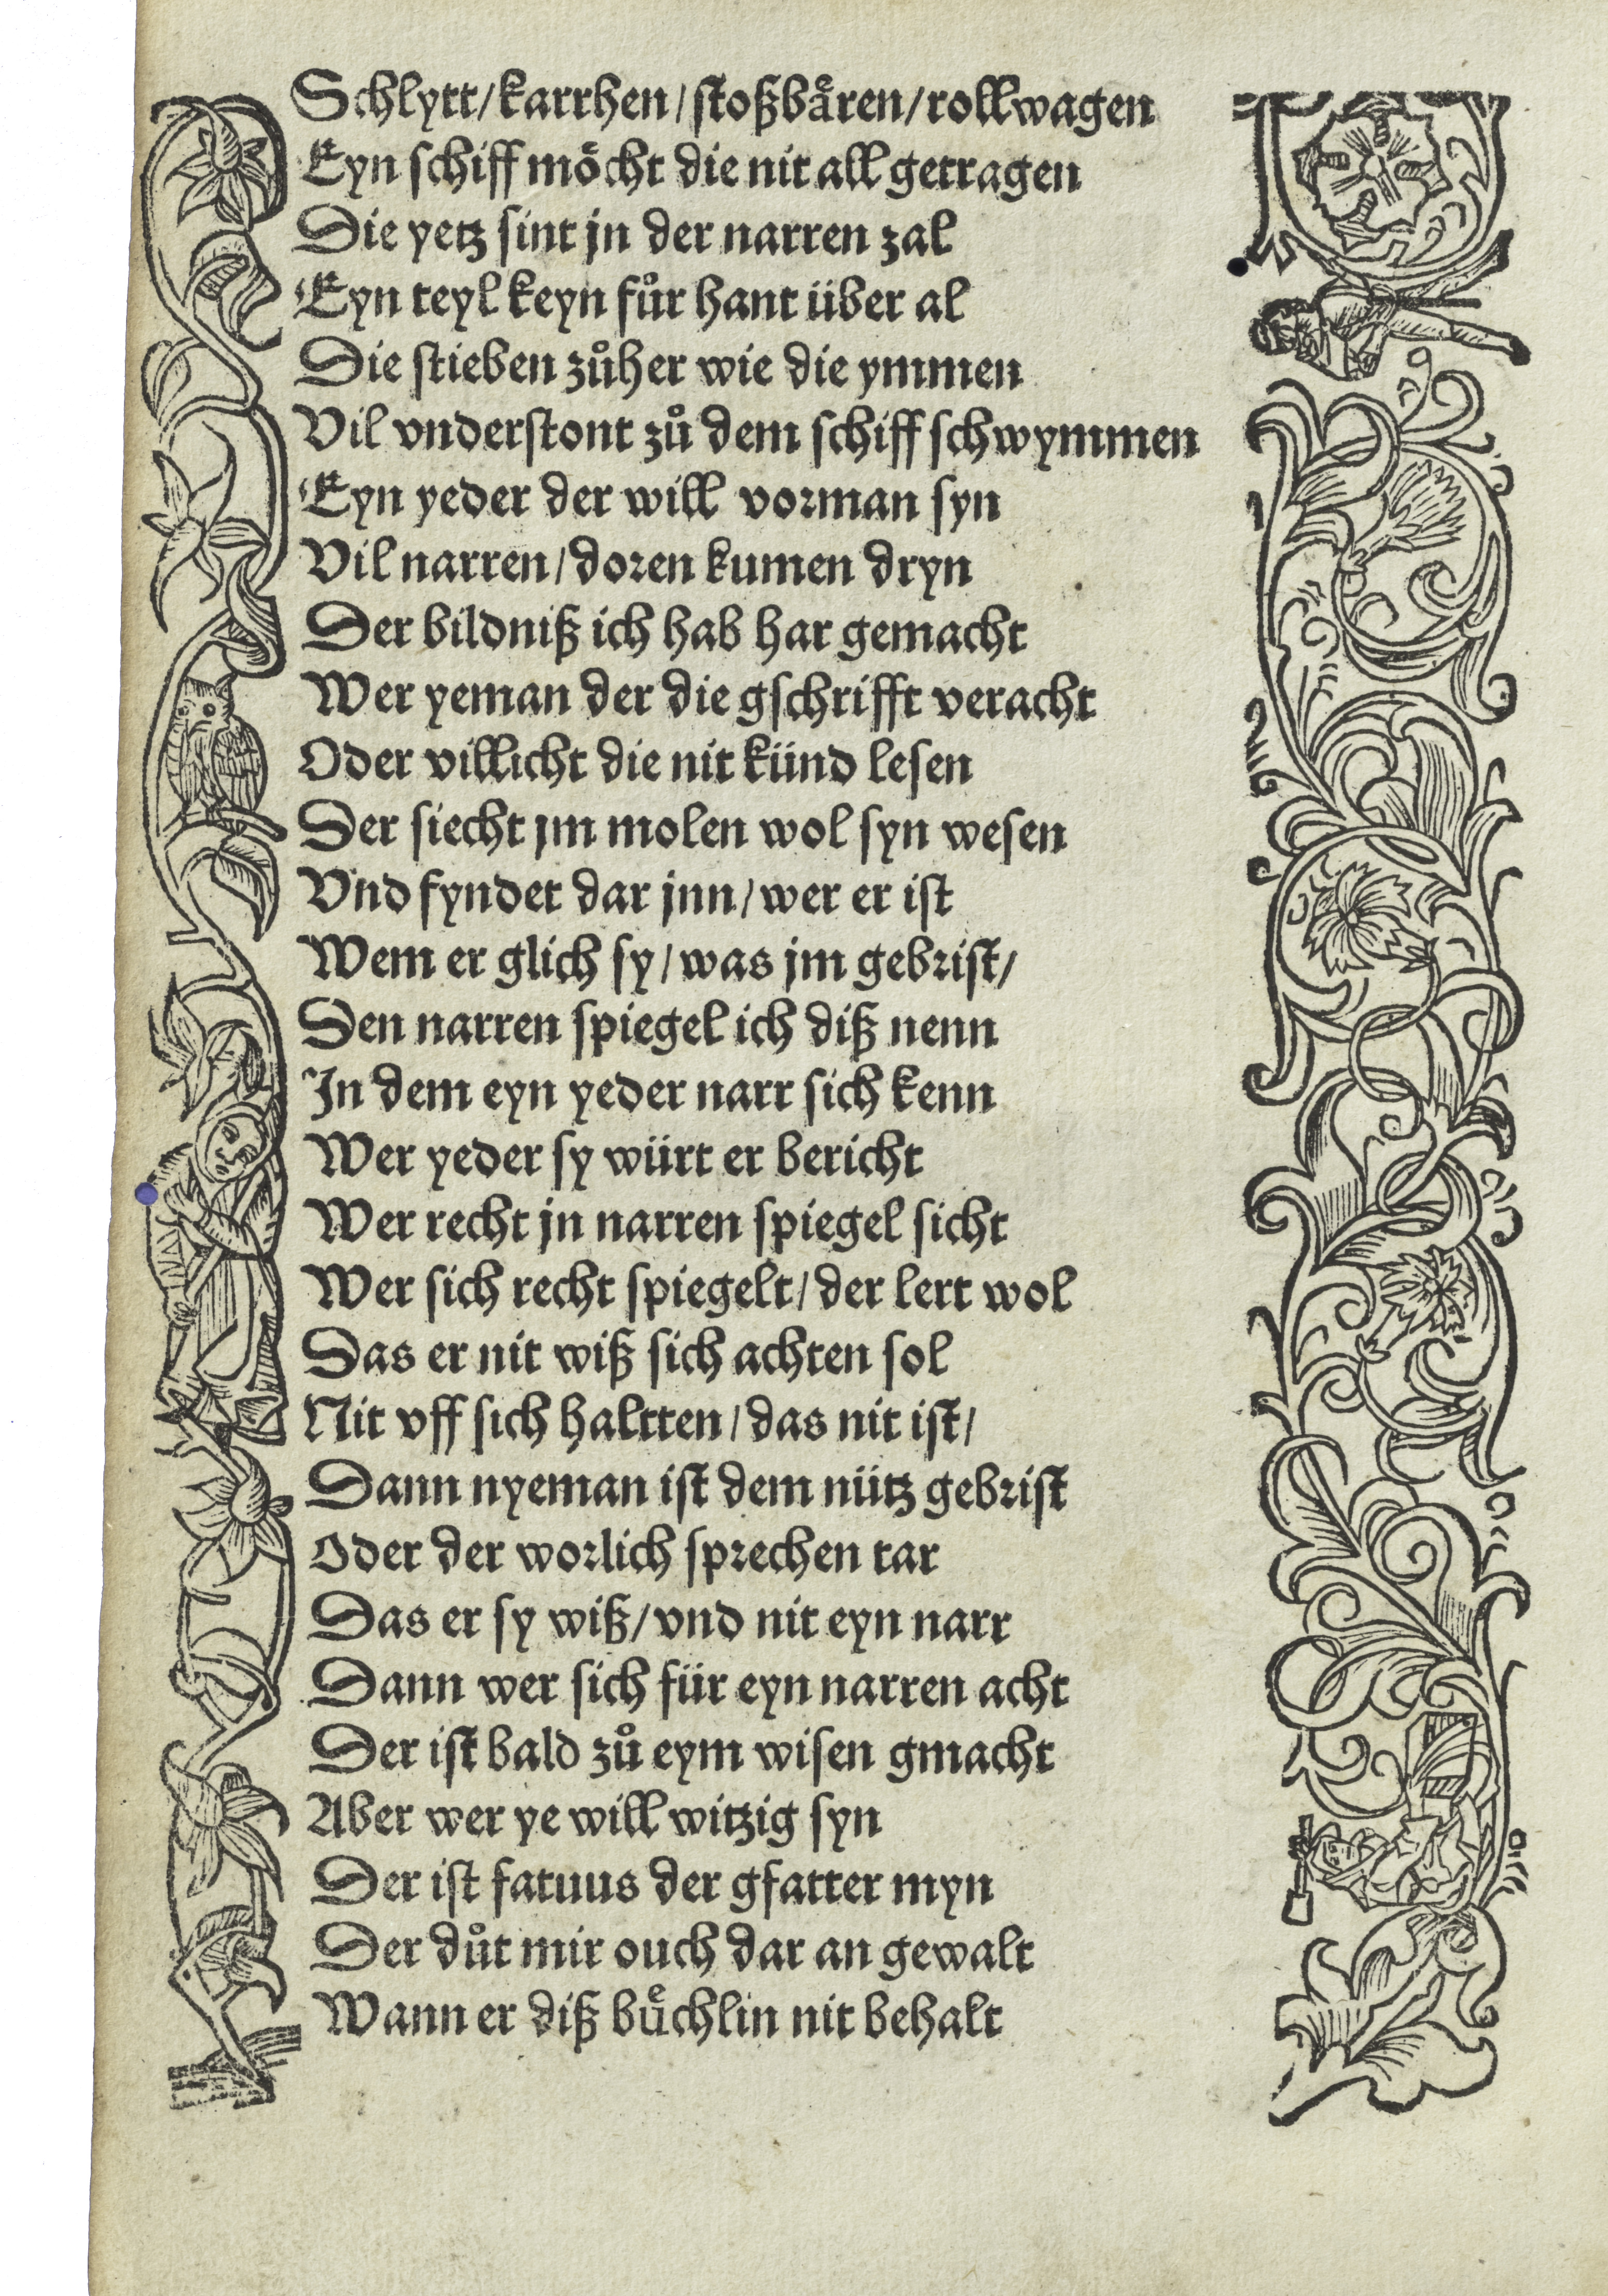 Schlytt/karrhen/stoßbåren/rollwagen
Eyn schiff mőcht die nit all getragen
Die yetz sint jn der narren zal
Eyn teyl keyn fůr hant über al
Die stieben zůher wie die ymmen
Vil vnderstont zů dem schiff schwymmen
Eyn yeder der will vorman syn
Vil narren/doren kumen dryn
Der bildniß ich hab har gemacht
Wer yeman der die gschrifft veracht
Oder villicht die nit künd lesen
Der siecht jm molen wol syn wesen
Vnd fyndet dar jnn/wer er ist
Wem er glich sy/was jm gebrist/
Den narren spiegel ich diß nenn
In dem eyn yeder narr sich kenn
Wer yeder sy würt er bericht
Wer recht jn narren spiegel sicht
Wer sich recht spiegelt/der lert wol
Das er nit wiß sich achten sol
Nit vff sich haltten/das nit ist/
Dann nyeman ist dem nütz gebrist
Oder der worlich sprechen tar
Das er sy wiß/vnd nit eyn narr
Dann wer sich für eyn narren acht
Der ist bald zů eym wisen gmacht
Aber wer ye will witzig syn
Der ist fatuus der gfatter myn
Der důt mir ouch dar an gewalt
Wann er diß bůchlin nit behalt